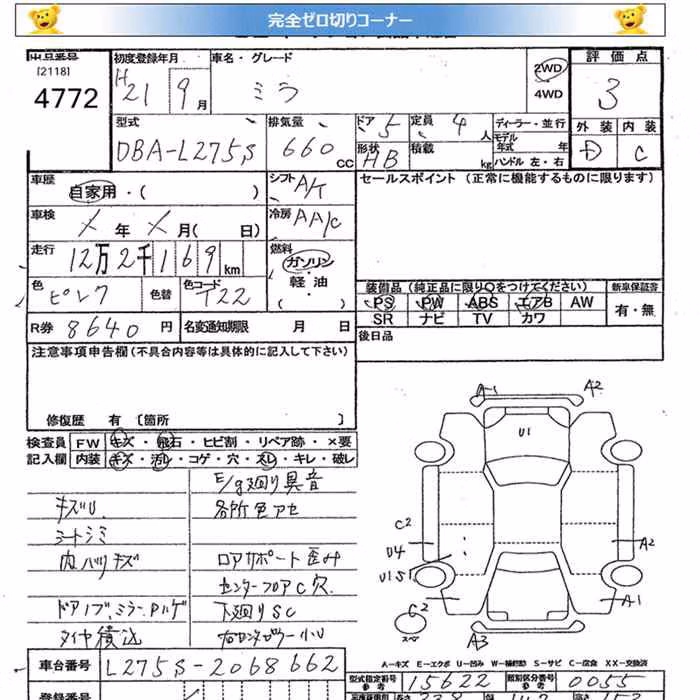 完全ゼロ切りコーナー
出品番号 [2118] 4772
初度登録年月 H21 9月
車名・グレード ミラ
2WD 4WD
評価点 3
外装 D 内装 C
型式 DBA-L275S
排気量 660 CC
ドア 5 定員 4人
形状 HB 積載 kg
ディーラー・並行
モデル年式 年
ハンドル 左・右
車歴 自家用・( )
シフト A/T
セールスポイント (正常に機能するものに限ります)
車検 年 月( 日)
冷房 AA/C
走行 12万2千169km
燃料 ガソリン・軽油・( )
色 ピンク 色替 色コード T22
装備品 (純正品に限り○をつけてください) 新車保証書
PS PW ABS エアB AW 有・無
SR ナビ TV カワ
R券 8640円 名変通知期限 月 日
後日品
注意事項申告欄(不具合内容等は具体的に記入して下さい)
修復歴 有 [箇所 ]
検査員 FW キズ・飛石・ヒビ割・リペア跡・×要
記入欄 内装 キズ・汚レ・コゲ・穴・スレ・キレ・破レ
E/g廻り異音
キズU
各所色アセ
シートシミ
内ハリキズ
ロアサポート歪み
センターフロアC穴
ドアノブ、ミラーPハゲ
下廻りSC
タイヤ積込
A-1 A2
U1
C2
U4
A2
U1S1
C2
A1
スペ
A3
A-キズ E-エクボ U-凹み W-補修跡 S-サビ C-腐食 XX-交換済
車台番号 L275S-2068662
型式指定番号 参考 15622 類別区分番号 参考 0055
登録番号